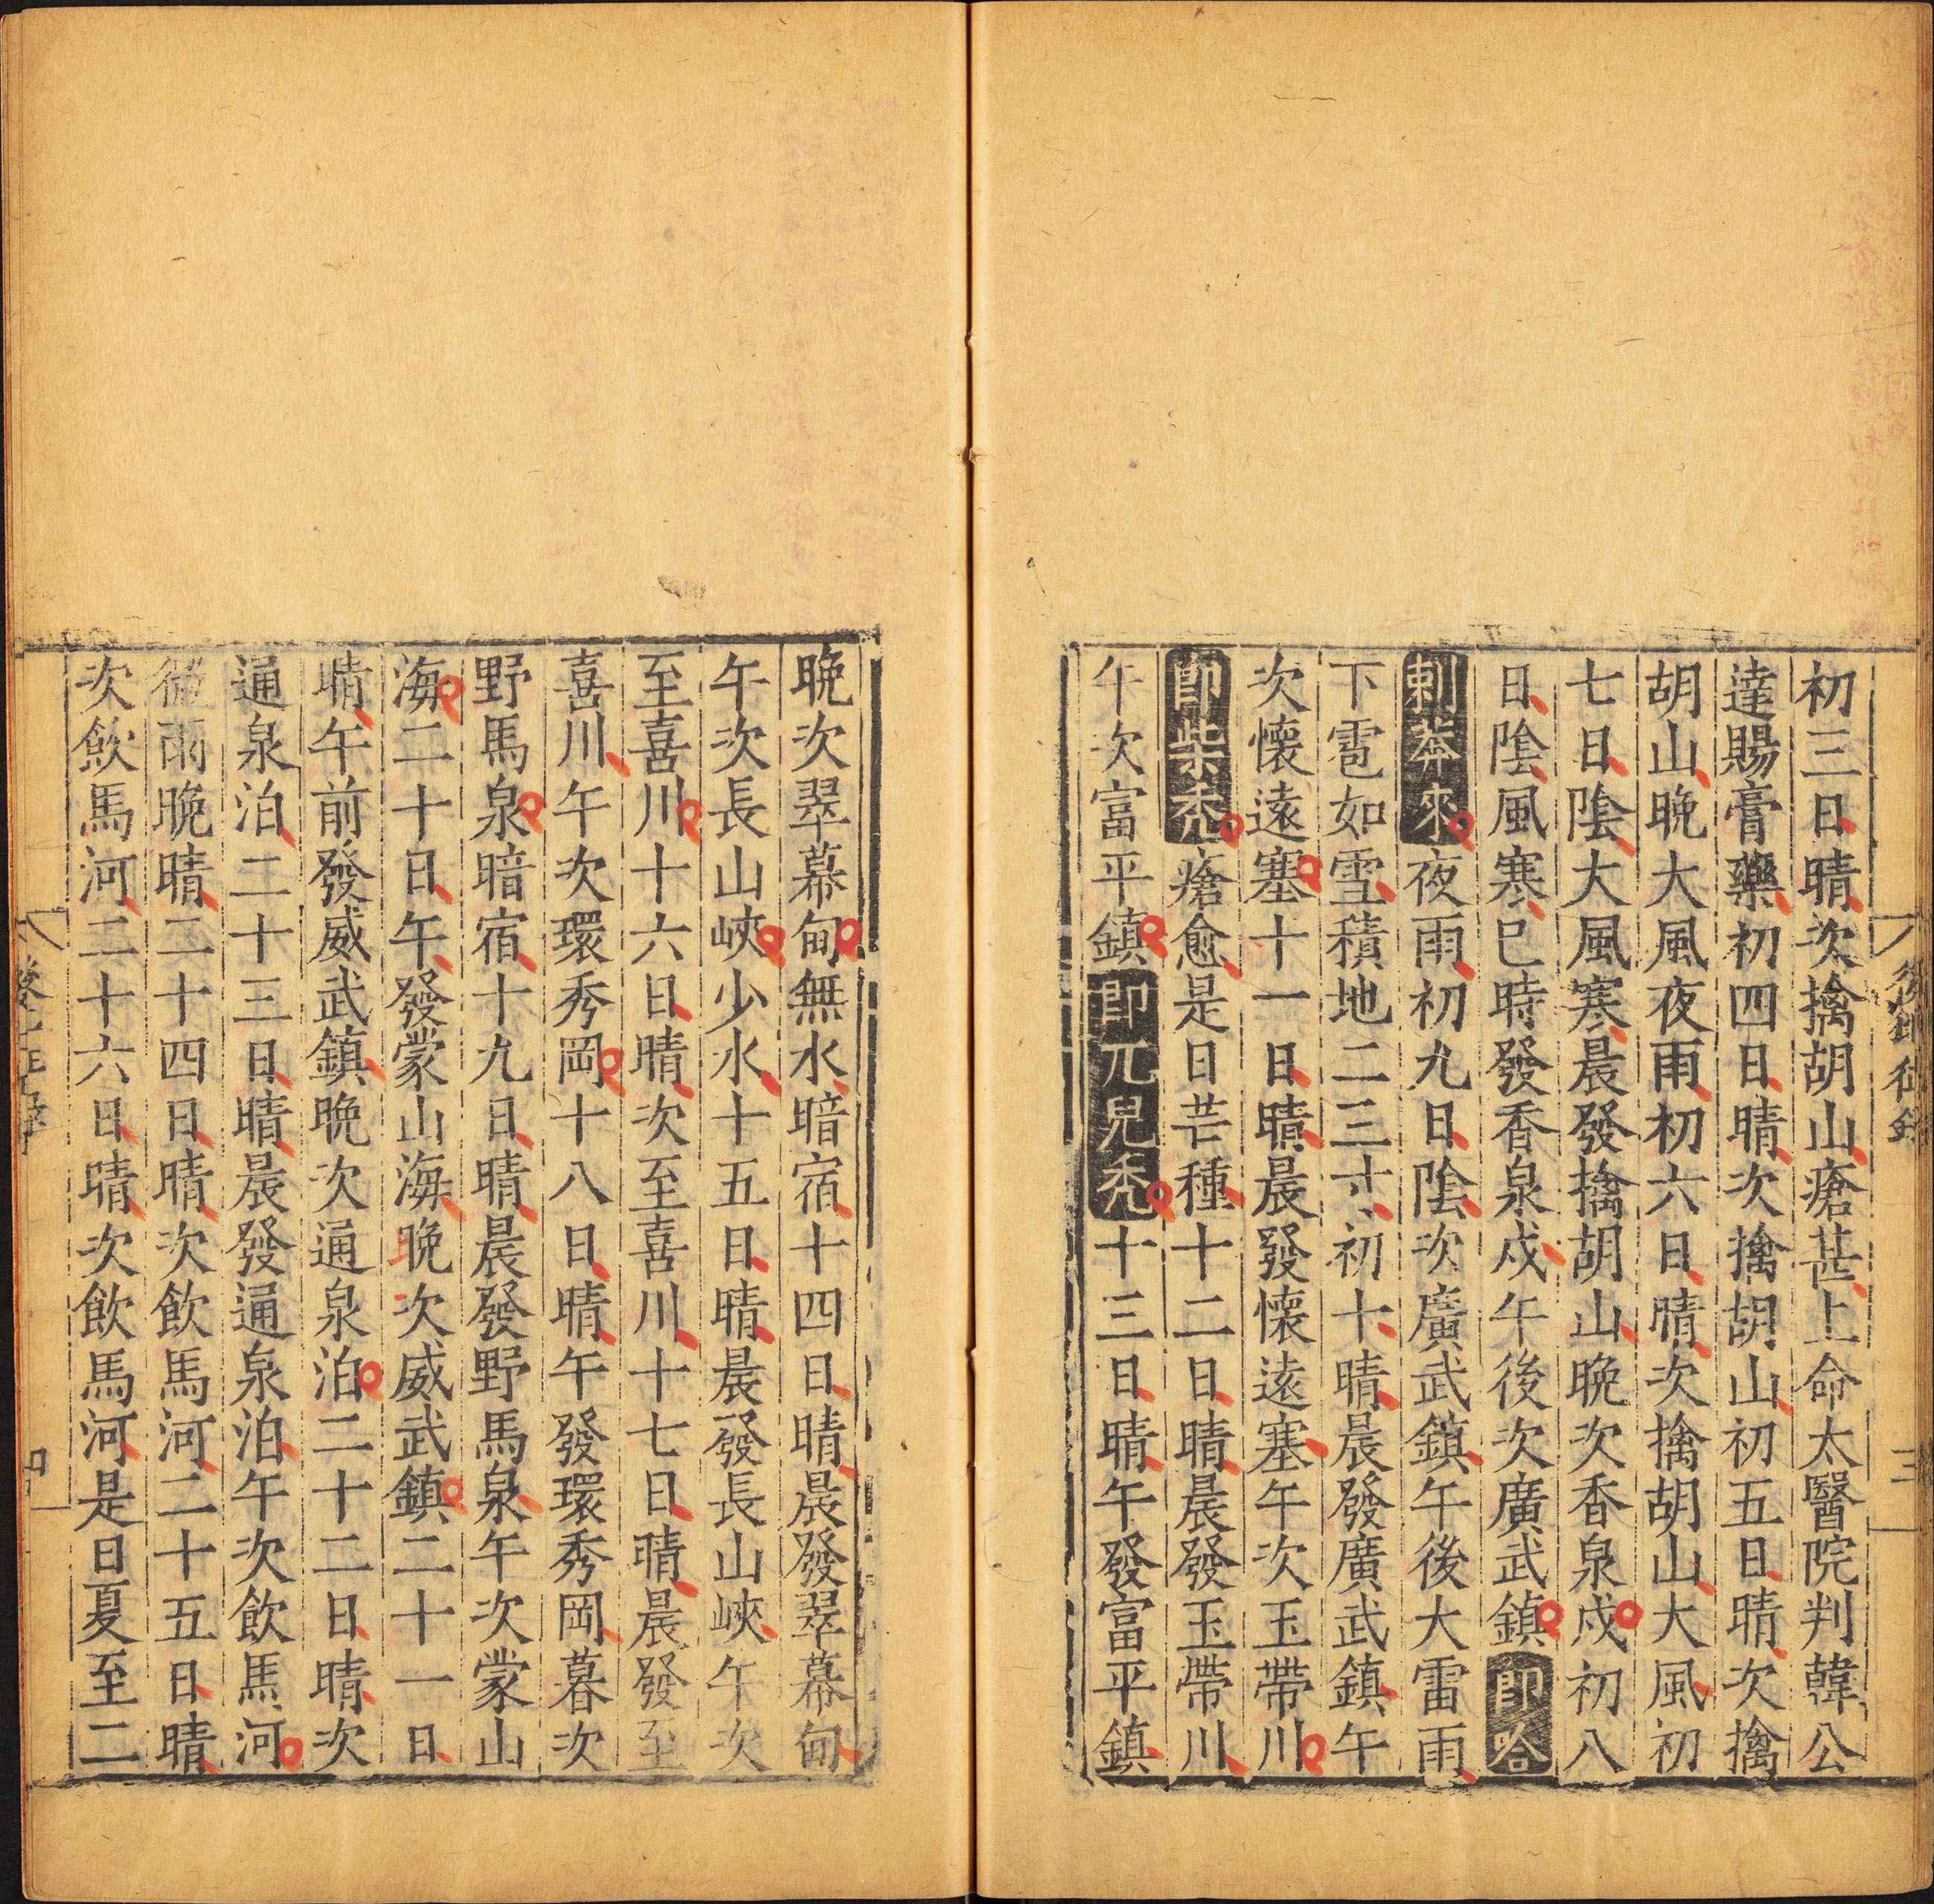 初三日晴次擒胡山瘡甚上命太醫院判韓公
達賜膏藥初四日晴次擒胡山初五日晴次擒
胡山晚大風夜雨初六日晴次擒胡山大風初
七日陰大風寒晨發擒胡山晚次香泉戍初八
日陰風寒巳時發香泉戍午後次廣武鎮即哈
剌莽來夜雨初九日陰次廣武鎮午後大雷雨
下雹如雪積地二三寸初十晴晨發廣武鎮午
次懷遠塞十一日晴晨發懷遠塞午次玉帶川
即柴禿瘡愈是日芒種十二日晴晨發玉帶川
午次富平鎮即兀兒禿十三日晴午發富平鎮
後北征錄
三
晚次翠幕甸無水暗宿十四日晴晨發翠幕甸
午次長山峽少水十五日晴晨發長山峽午次
至喜川十六日晴次至喜川十七日晴晨發至
喜川午次環秀岡十八日晴午發環秀岡暮次
野馬泉暗宿十九日晴晨發野馬泉午次蒙山
海二十日午發蒙山海晚次威武鎮二十一日
晴午前發威武鎮晚次通泉泊二十二日晴次
通泉泊二十三日晴晨發通泉泊午次飲馬河
微雨晚晴二十四日晴次飲馬河二十五日晴
次飲馬河二十六日晴次飲馬河是日夏至二
四